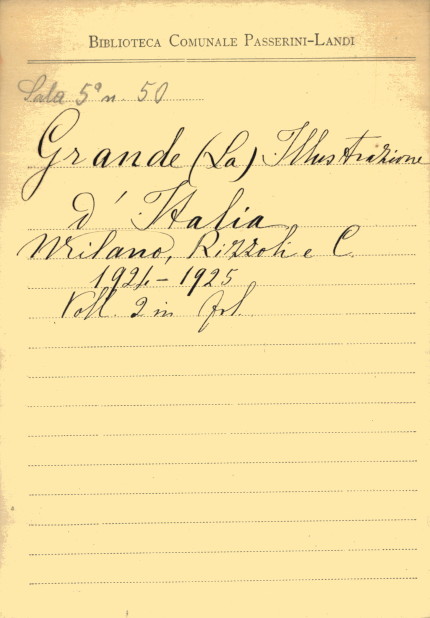 BIBLIOTECA COMUNALE PASSERINI-LANDI
Sala 5ª n. 50
Grande (La) Illustrazione
d'Italia
Milano, Rizzoli e C.
1924-1925
Voll. 2 in fol.